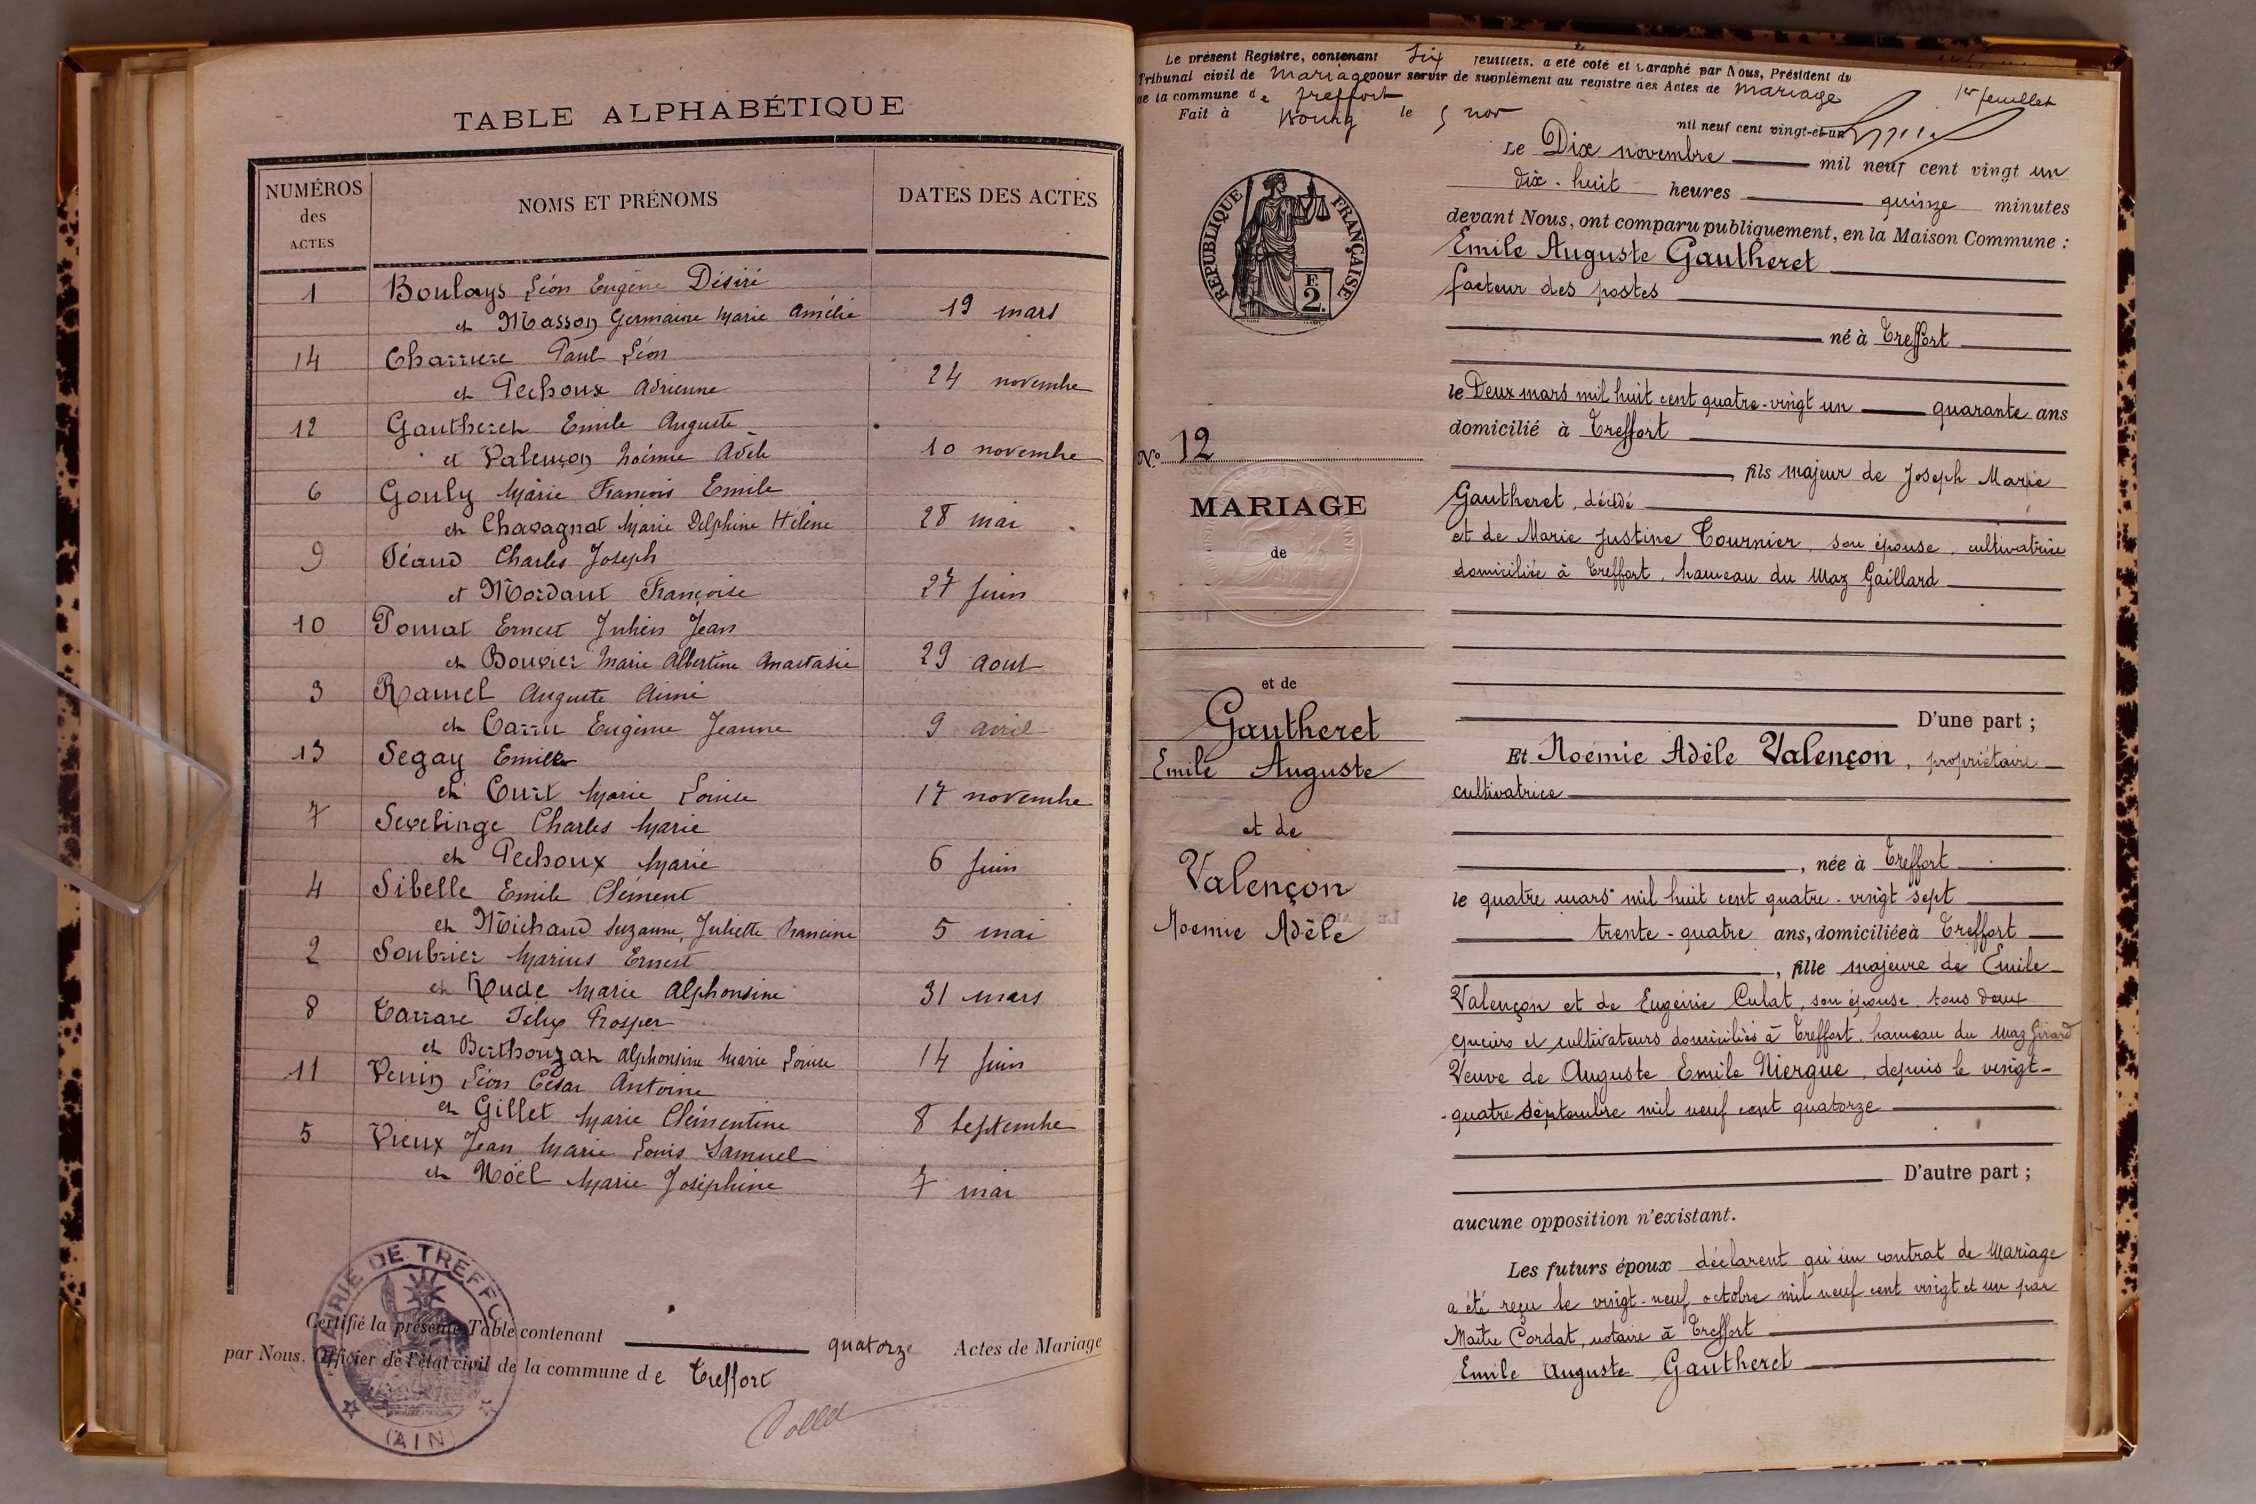 TABLE ALPHABÉTIQUE
NUMÉROS des ACTES
NOMS ET PRÉNOMS
DATES DES ACTES
1 Boulays Léon Eugène Désiré
et Masson Germaine Marie Amélie 19 mars
14 Charriere Paul Léon
et Pechoux Adrienne 24 novembre
12 Gautheret Emile Auguste
et Valençon Noémie Adèle 10 novembre
6 Gouly Marie François Emile
et Chavagnat Marie Delphine Hélène 28 mai
9 Péaud Charles Joseph
et Mordant Françoise 27 Juin
10 Pomat Ernest Julien Jean
et Bouvier Marie Albertine Anastasie 29 aout
3 Ramel Auguste Aimé
et Carru Eugénie Jeanne 9 avril
13 Segay Emile
et Curt Marie Louise 17 novembre
7 Sevelinge Charles Marie
et Pechoux Marie 6 Juin
4 Sibelle Emile Clément
et Michaud Suzanne, Juliette Francine 5 mai
2 Soubrier Marius Ernest
et Rude Marie Alphonsine 31 mars
8 Tarrare Félix Prosper
et Berthouzat Alphonsine Marie Louise 14 Juin
11 Venin Léon César Antoine
et Gillet Marie Clémentine 8 Septembre
5 Vieux Jean Marie Louis Samuel
et Noël Marie Joséphine 7 mai
MAIRIE DE TREFFORT
(AIN)
Certifié la présente Table contenant quatorze Actes de Mariage
par Nous, Officier de l'état civil de la commune de Treffort
Le présent Registre, contenant Six feuillets, a été coté et paraphé par Nous, Président du
Tribunal civil de Mariage pour servir de supplément au registre des Actes de Mariage
de la commune de Treffort
1er feuillet
Fait à Bourg le 5 nov mil neuf cent vingt-et-un
Le Dix novembre mil neuf cent vingt un
dix-huit heures quinze minutes
devant Nous, ont comparu publiquement, en la Maison Commune :
Emile Auguste Gautheret
facteur des postes
né à Treffort
le Deux mars mil huit cent quatre-vingt un quarante ans
domicilié à Treffort
fils majeur de Joseph Marie
Gautheret, décédé
et de Marie Justine Tournier, son épouse, cultivatrice
domiciliée à Treffort, hameau du Maz Gaillard
D'une part ;
Et Noémie Adèle Valençon, propriétaire
cultivatrice
, née à Treffort
le quatre mars mil huit cent quatre-vingt sept
trente-quatre ans, domiciliée à Treffort
, fille majeure de Emile
Valençon et de Eugénie Culat, son épouse, tous deux
épiciers et cultivateurs domiciliés à Treffort, hameau du Maz Girard
Veuve de Auguste Emile Niergue, depuis le vingt-
quatre septembre mil neuf cent quatorze
D'autre part ;
aucune opposition n'existant.
Les futurs époux déclarent qu'un contrat de Mariage
a été reçu le vingt-neuf octobre mil neuf cent vingt et un par
Maître Cordat, notaire à Treffort
Emile Auguste Gautheret
RÉPUBLIQUE FRANÇAISE
E 2.
No. 12
MARIAGE
de
et de
Gautheret
Emile Auguste
et de
Valençon
Noemie Adèle